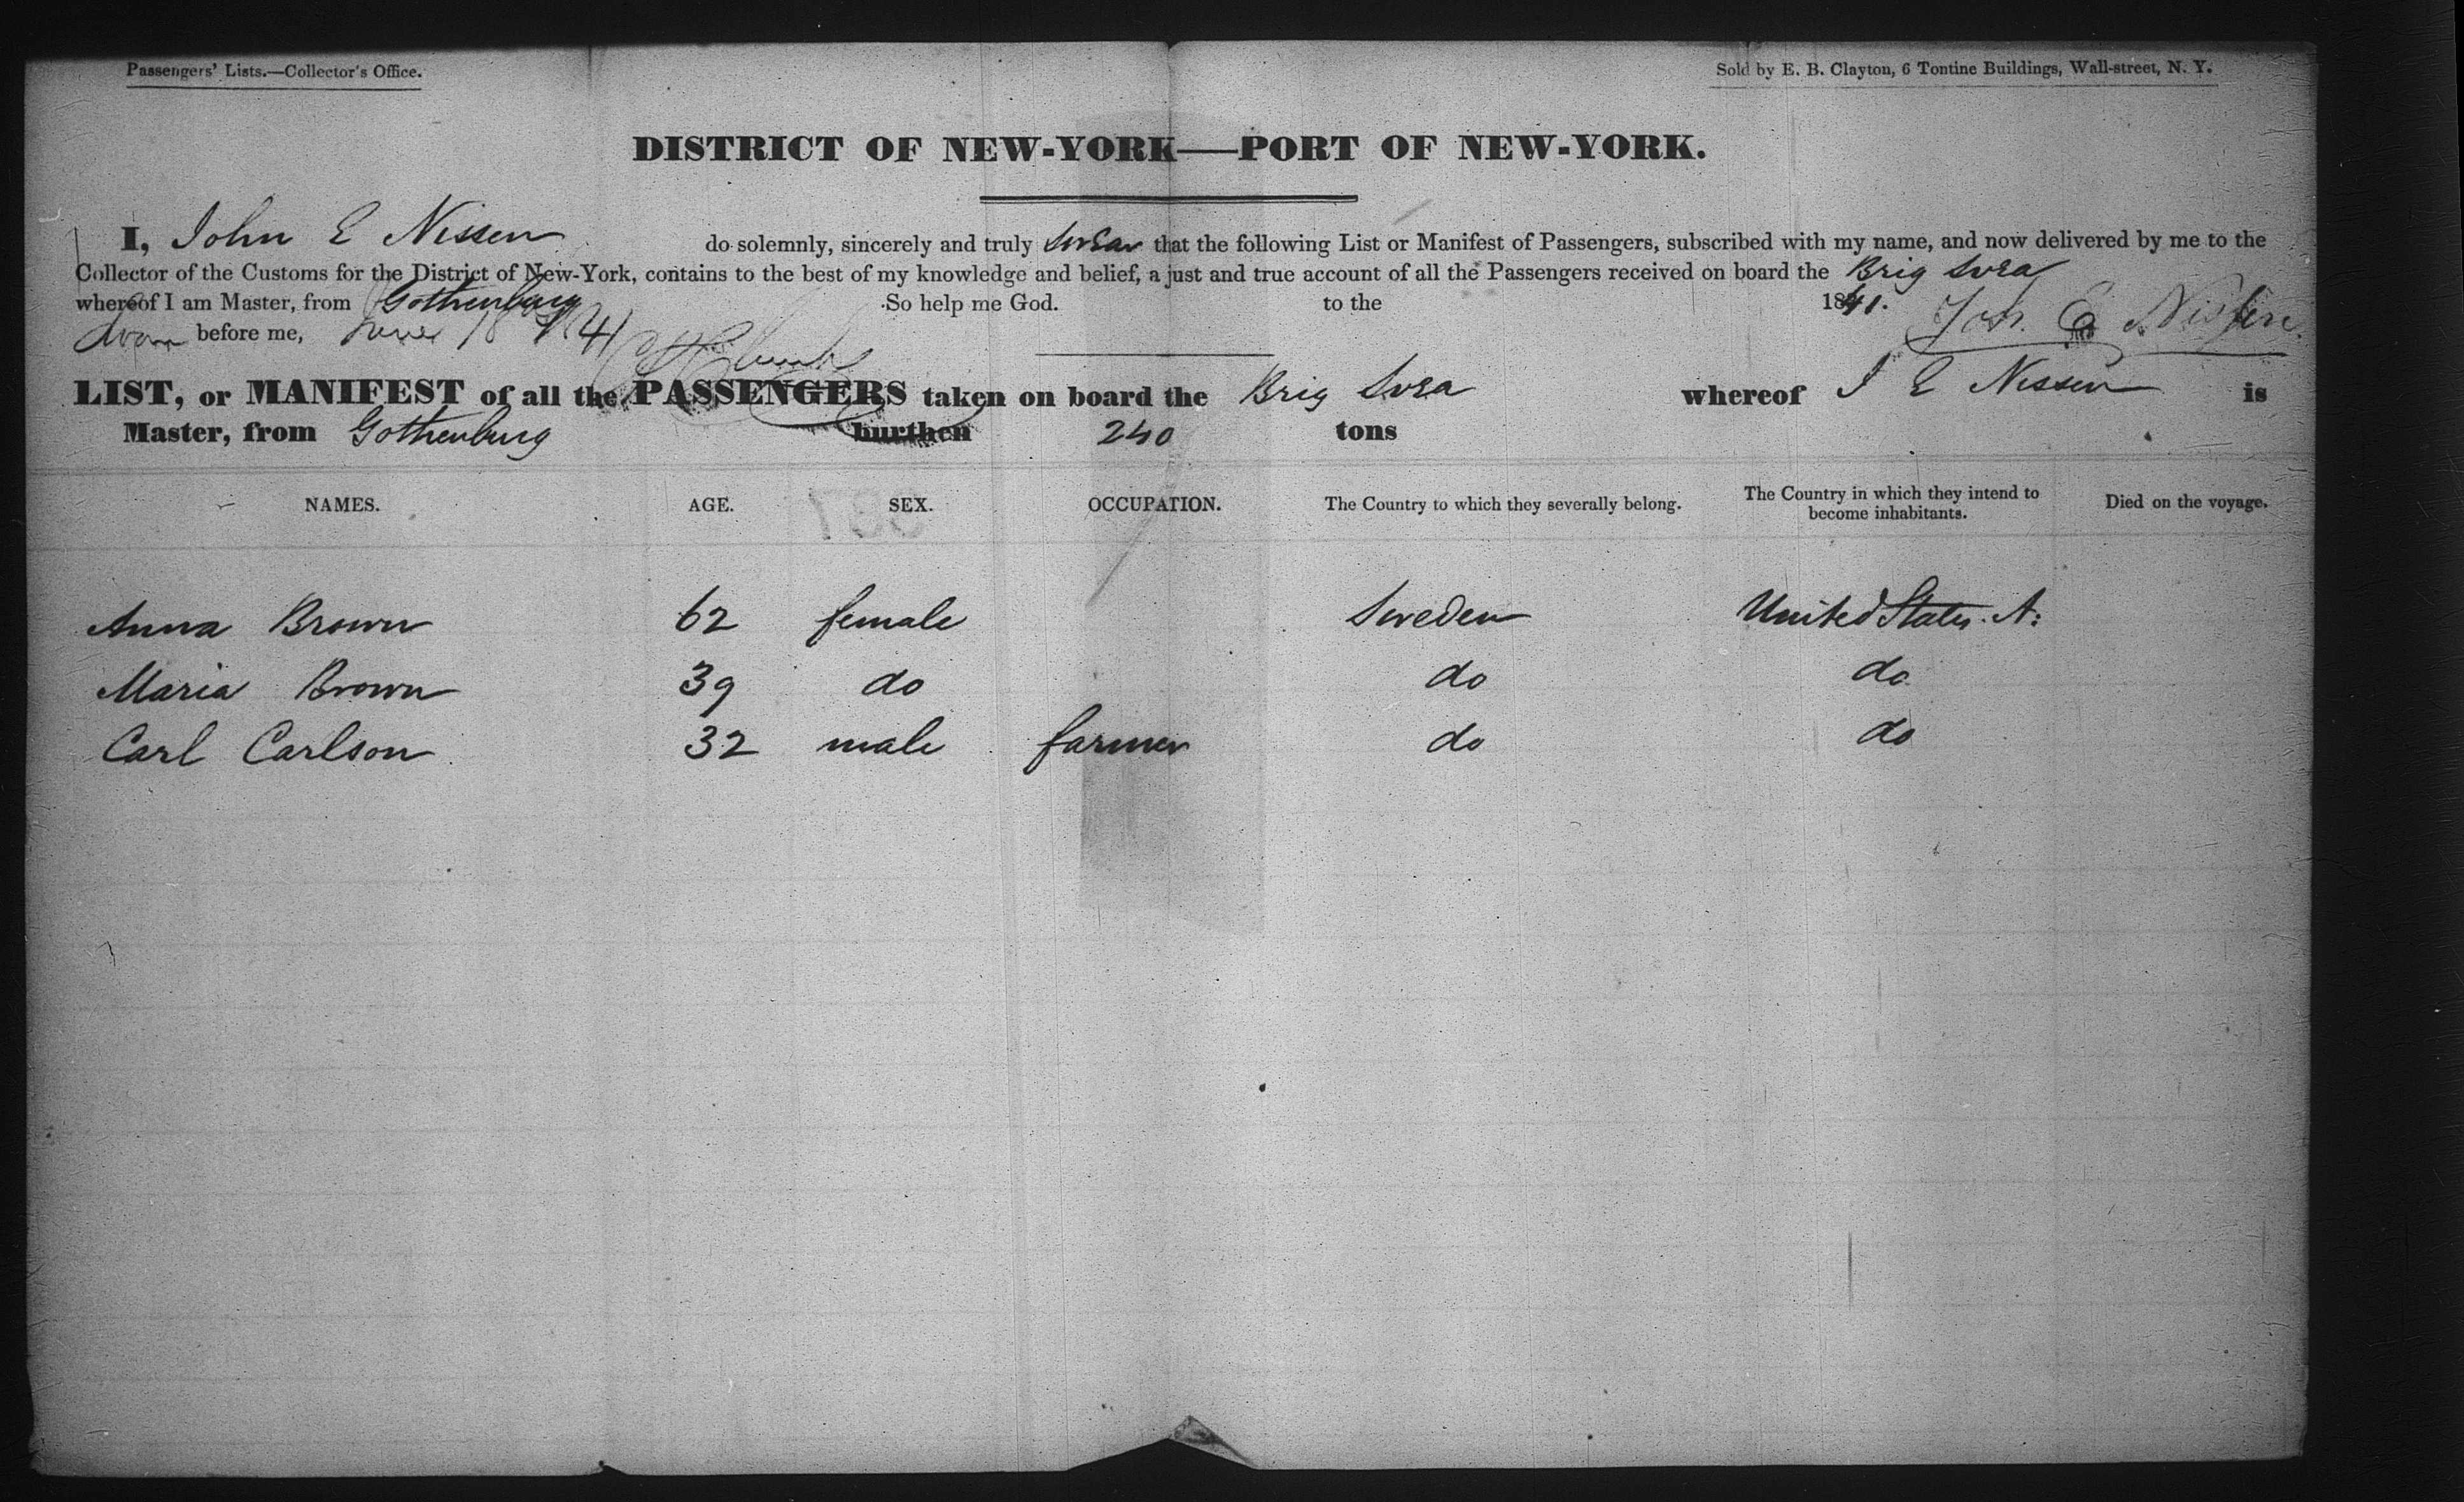 Passengers' Lists.—Collector's Office.
Sold by E. B. Clayton, 6 Tontine Buildings, Wall-street, N. Y.
DISTRICT OF NEW-YORK—PORT OF NEW-YORK.
I, John E Nissen do solemnly, sincerely and truly swear that the following List or Manifest of Passengers, subscribed with my name, and now delivered by me to the
Collector of the Customs for the District of New-York, contains to the best of my knowledge and belief, a just and true account of all the Passengers received on board the Brig Svea
whereof I am Master, from Gothenburg So help me God. to the 1841. Joh. E Nissen
Sworn before me, June 18 1841
LIST, or MANIFEST of all the PASSENGERS taken on board the Brig Svea whereof J E Nissen is
Master, from Gothenburg burthen 240 tons
NAMES. AGE. SEX. OCCUPATION. The Country to which they severally belong. The Country in which they intend to become inhabitants. Died on the voyage.
Anna Brown 62 female Sweden United States. A:
Maria Brown 39 do do do
Carl Carlson 32 male farmer do do